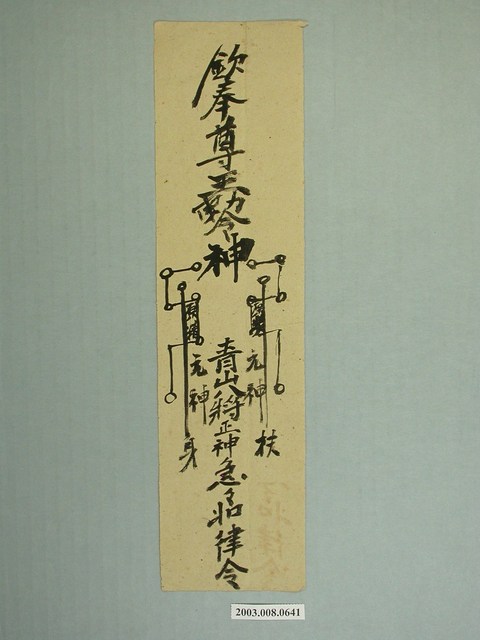 欽奉尊王勅令神
元神扶
青山八將正神急急如律令
元神身
2003.008.0641